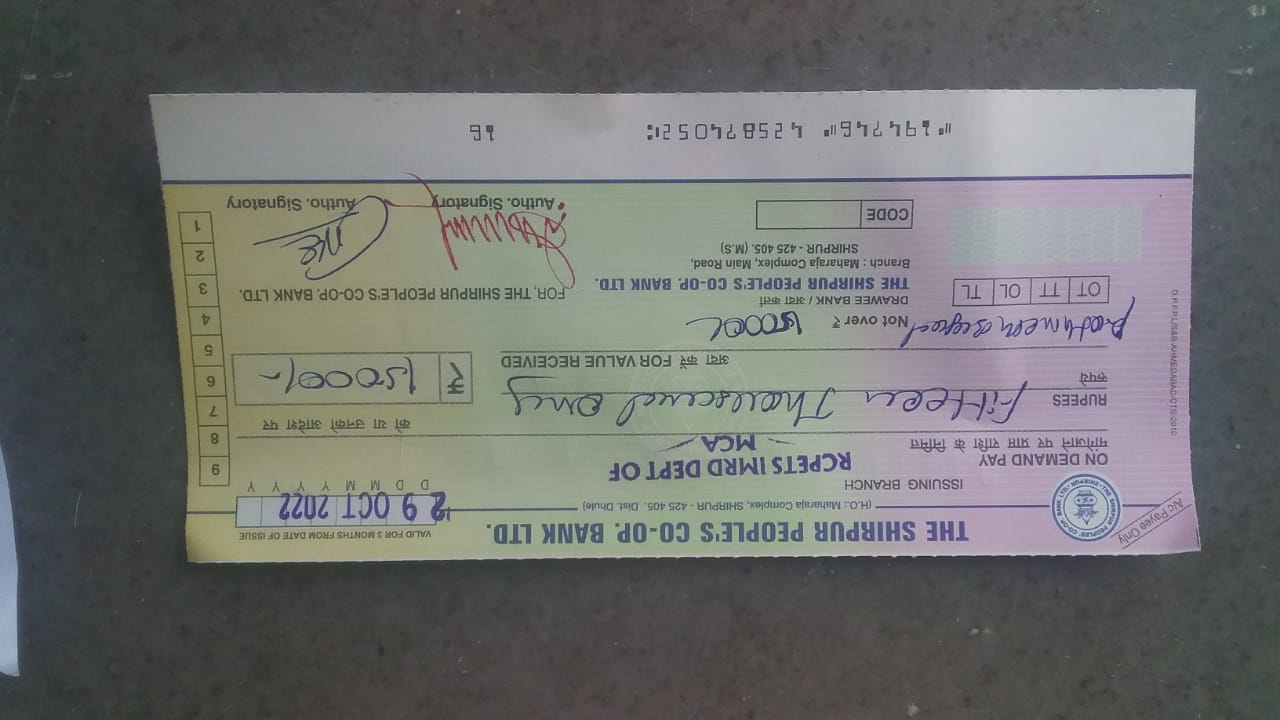 A/c Payee Only
THE SHIRPUR PEOPLE'S CO-OP. BANK LTD.
(H.O.: Maharaja Complex, SHIRPUR - 425 405. Dist. Dhule)
VALID FOR 3 MONTHS FROM DATE OF ISSUE
29 OCT 2022
D D M M Y Y Y Y
ISSUING BRANCH
ON DEMAND PAY
मांगेजाने पर प्राप्त राशि के निमित्त
RCPETS IMRD DEPT OF
MCA
को या उनको आदेश पर
RUPEES Fifteen Thousand only
रुपये
₹ 15000/-
अदा करें FOR VALUE RECEIVED
Not over ₹ 15000/-
OT TT OL TL
DRAWEE BANK / अदा कर्ता
THE SHIRPUR PEOPLE'S CO-OP. BANK LTD.
Branch : Maharaja Complex, Main Road,
SHIRPUR - 425 405. (M.S)
CODE
FOR, THE SHIRPUR PEOPLE'S CO-OP. BANK LTD.
Autho. Signatory
Autho. Signatory
9
8
7
6
5
4
3
2
1
⑈194746⑈ 425874052⑆ 16